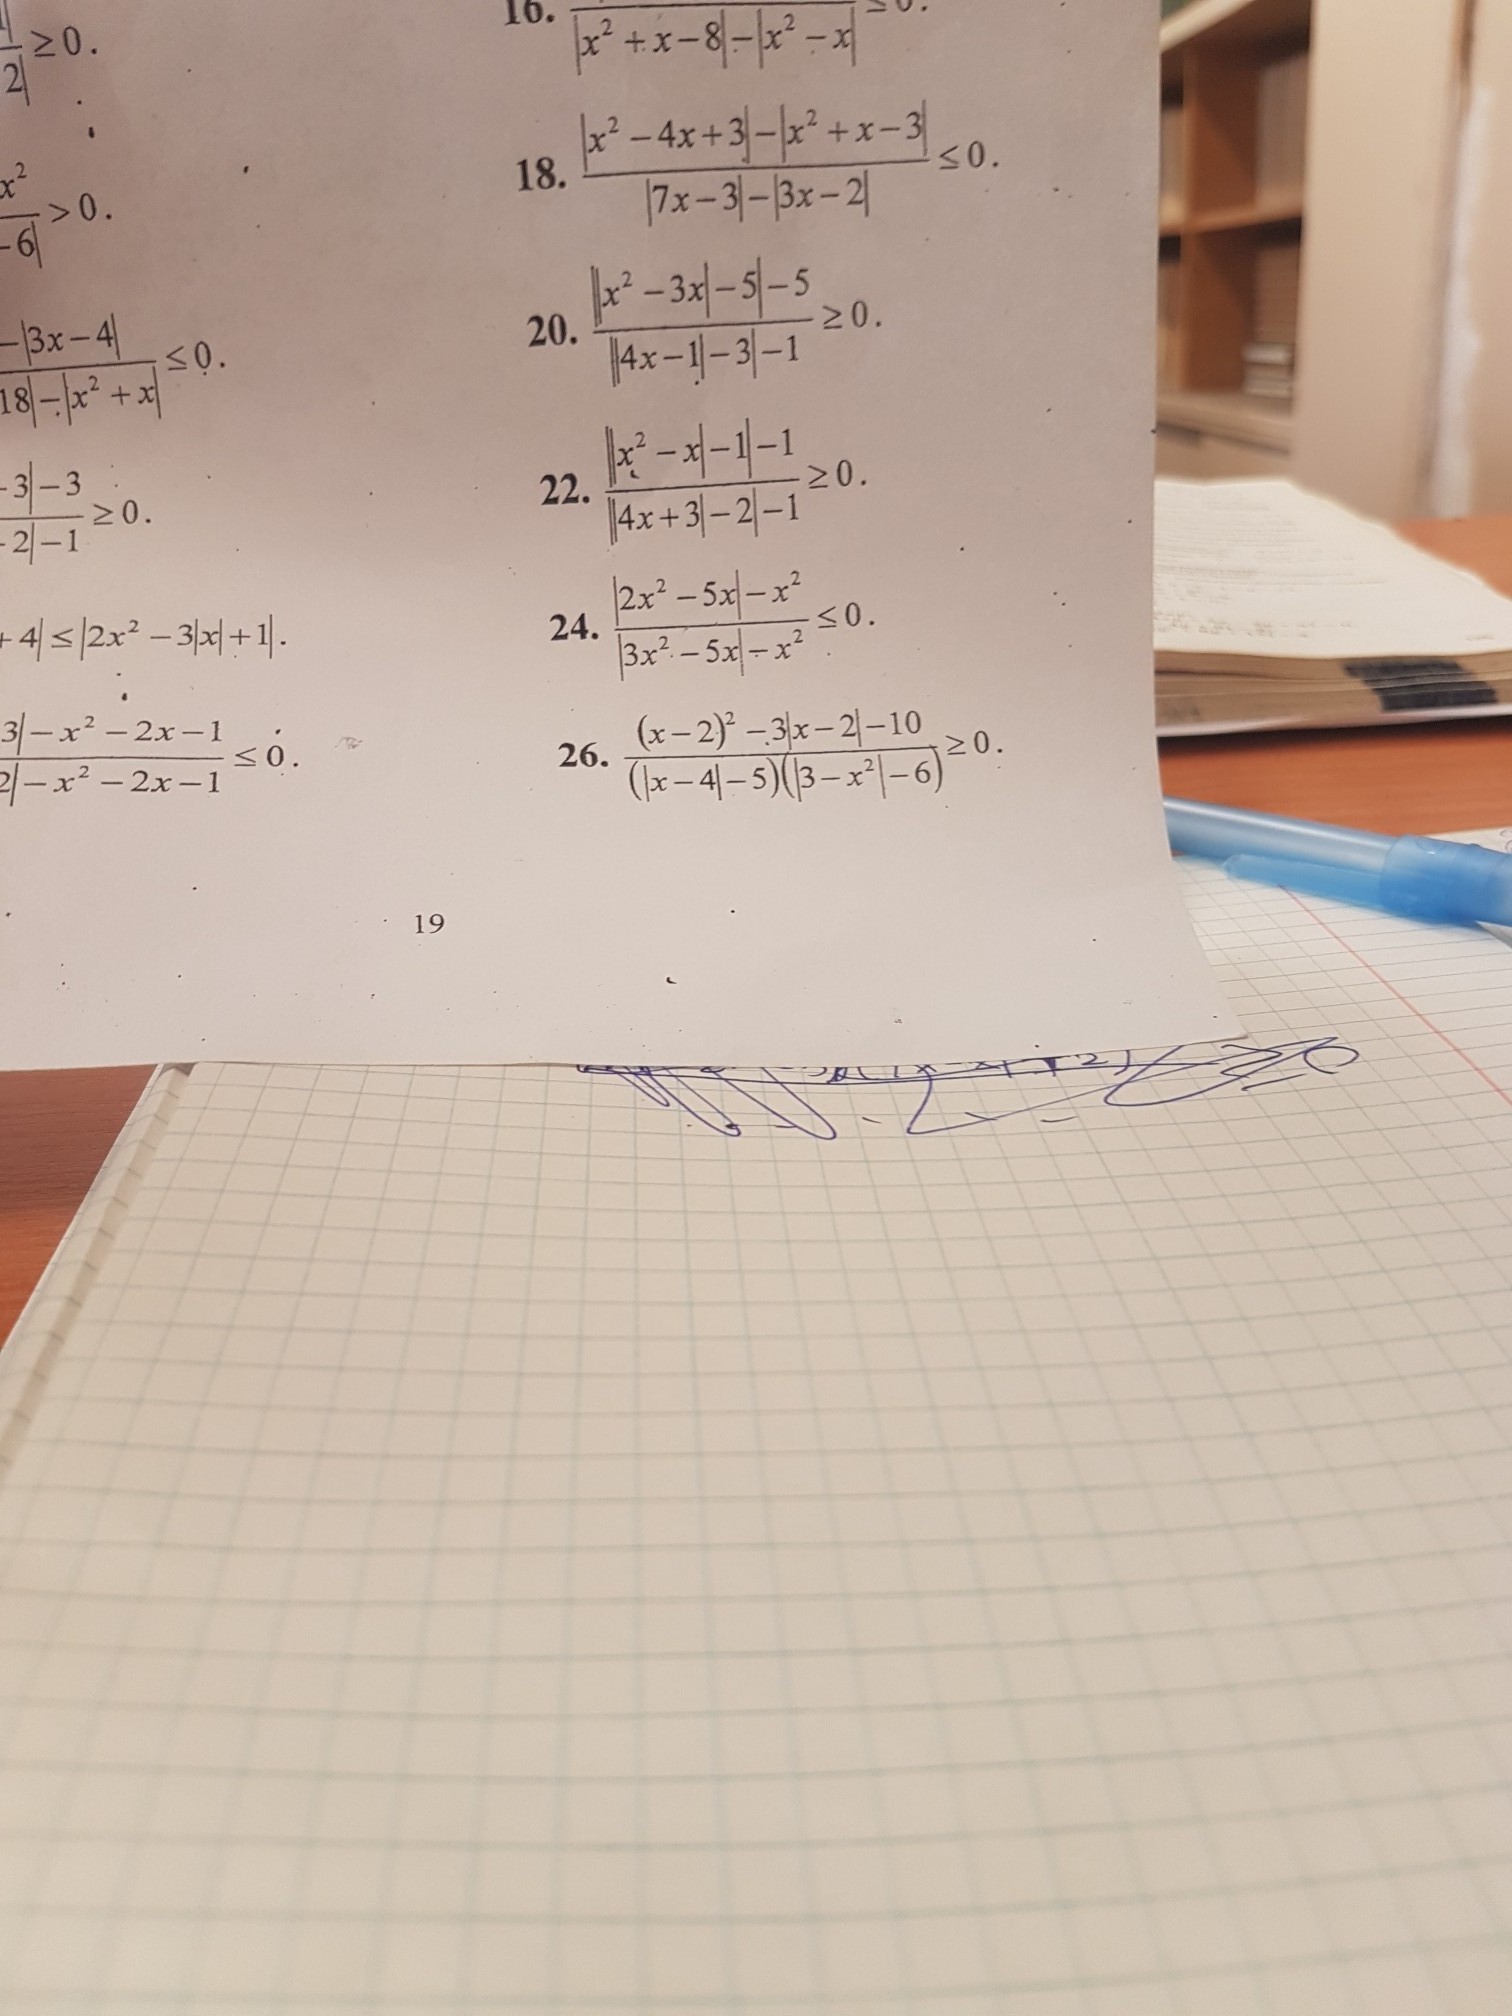 2| ≥ 0.
x²
-6| > 0.
-|3x-4|
18|-|x²+x| ≤ 0.
-3|-3
-2|-1 ≥ 0.
+4| ≤ |2x²-3|x|+1|.
3|-x²-2x-1
2|-x²-2x-1 ≤ 0.
16. |x²+x-8|-|x²-x| ≤ 0.
18. |x²-4x+3|-|x²+x-3|
|7x-3|-|3x-2| ≤ 0.
20. ||x²-3x|-5|-5
||4x-1|-3|-1 ≥ 0.
22. ||x²-x|-1|-1
||4x+3|-2|-1 ≥ 0.
24. |2x²-5x|-x²
|3x²-5x|-x² ≤ 0.
26. (x-2)²-3|x-2|-10
(|x-4|-5)(|3-x²|-6) ≥ 0.
19